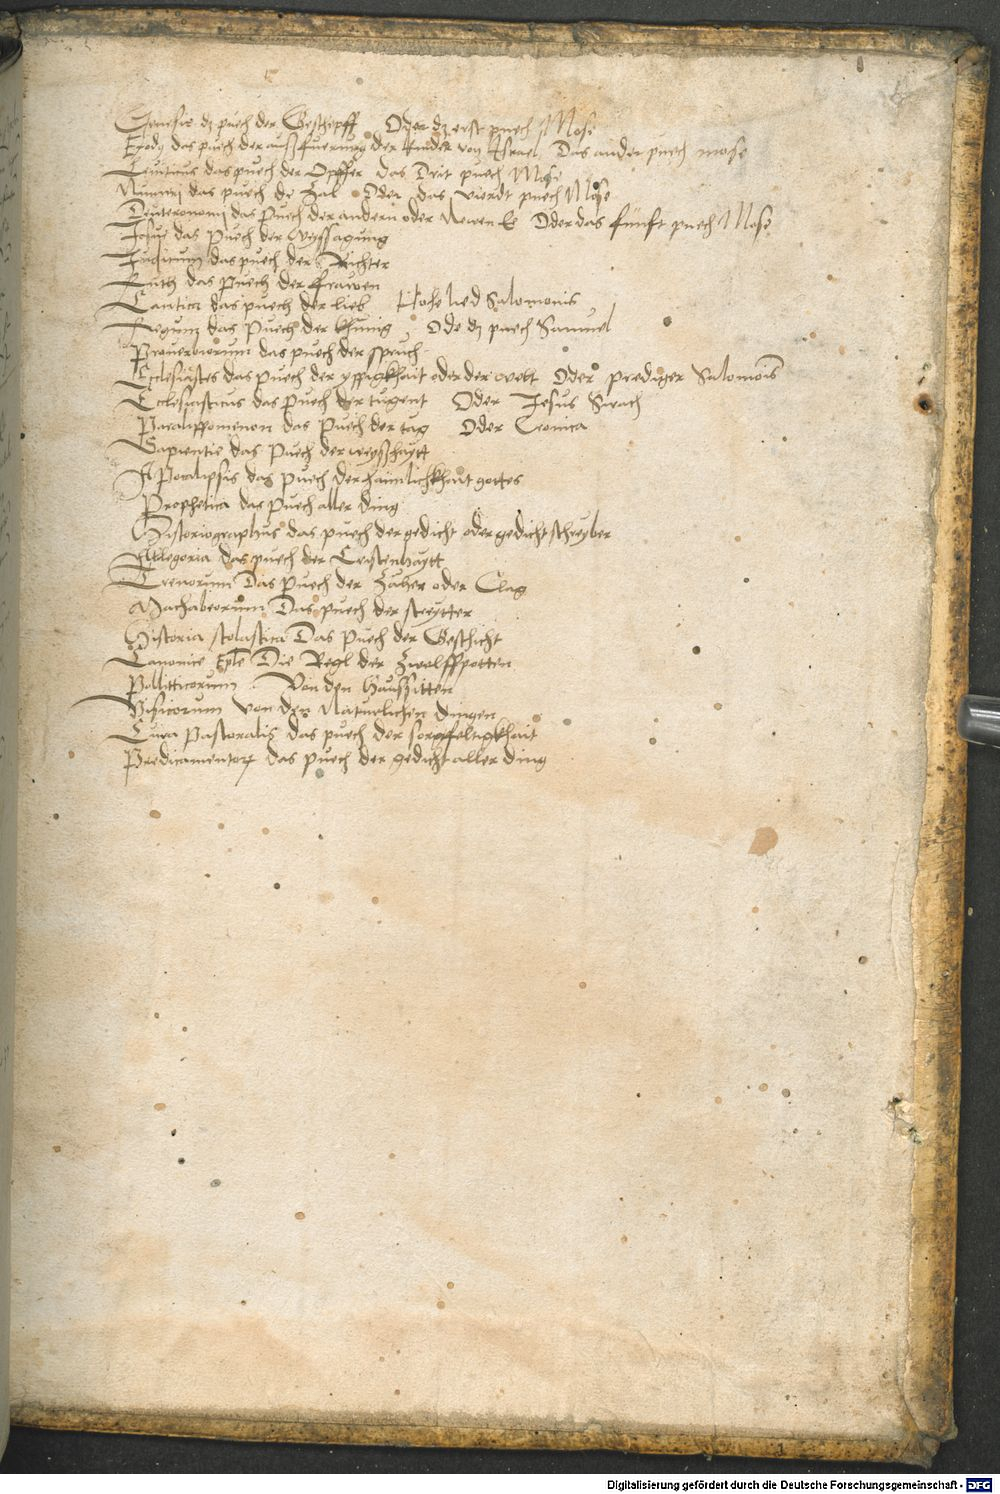 Genesis dz puech der Geschepff Oder dz erst puech Mose
Exody das puech der aussfuerung der kinder von Israel Das ander puech mose
Leuiticus das puech der Opffer das Drit puech Mose
Numeri das puech der Zal Oder das vierdt puech Mose
Deuteronomi das Puech der andern oder Newen Ee Oder das fünfft puech Mose
Josue das Puech der Weyssagung
Judicum das puech der Richter
Ruth das Puech der frawen
Cantica das puech der lieb Hohe lied Salomonis
Regum das Puech der Khunig Ode dz puech Samuel
Prouerbiorum das puech der spruch
Ecclesiastes das puech der yppigkhait oder der welt Oder prediger Salomois
Ecclesiasticus das puech der tugent Oder Jesus Sirach
Paralippomenon das Puech der tag Oder Cronica
Sapientie das Puech der weysshaytt
APocalipsis das puech der haimlichkhait gottes
Prophetica das Puech aller ding
Historiographus das puech der gedicht oder gedicht schreyber
Allegoria das puech der Cristenhaytt
Trenorum Das Puech der Zäher oder Clag
Machabeorum Das puech der streytter
Historia scolastica Das Puech der Geschicht
Canonice Eple Die Regl der Zwelffpotten
Pollitticorum Von den Haussitten
Phisicorum von den Naturlichen dingen
Cura Pastoralis das puech der sorgfeltigkhait
Predicamentorum das puech der gedicht aller ding
1
Digitalisierung gefördert durch die Deutsche Forschungsgemeinschaft - DFG